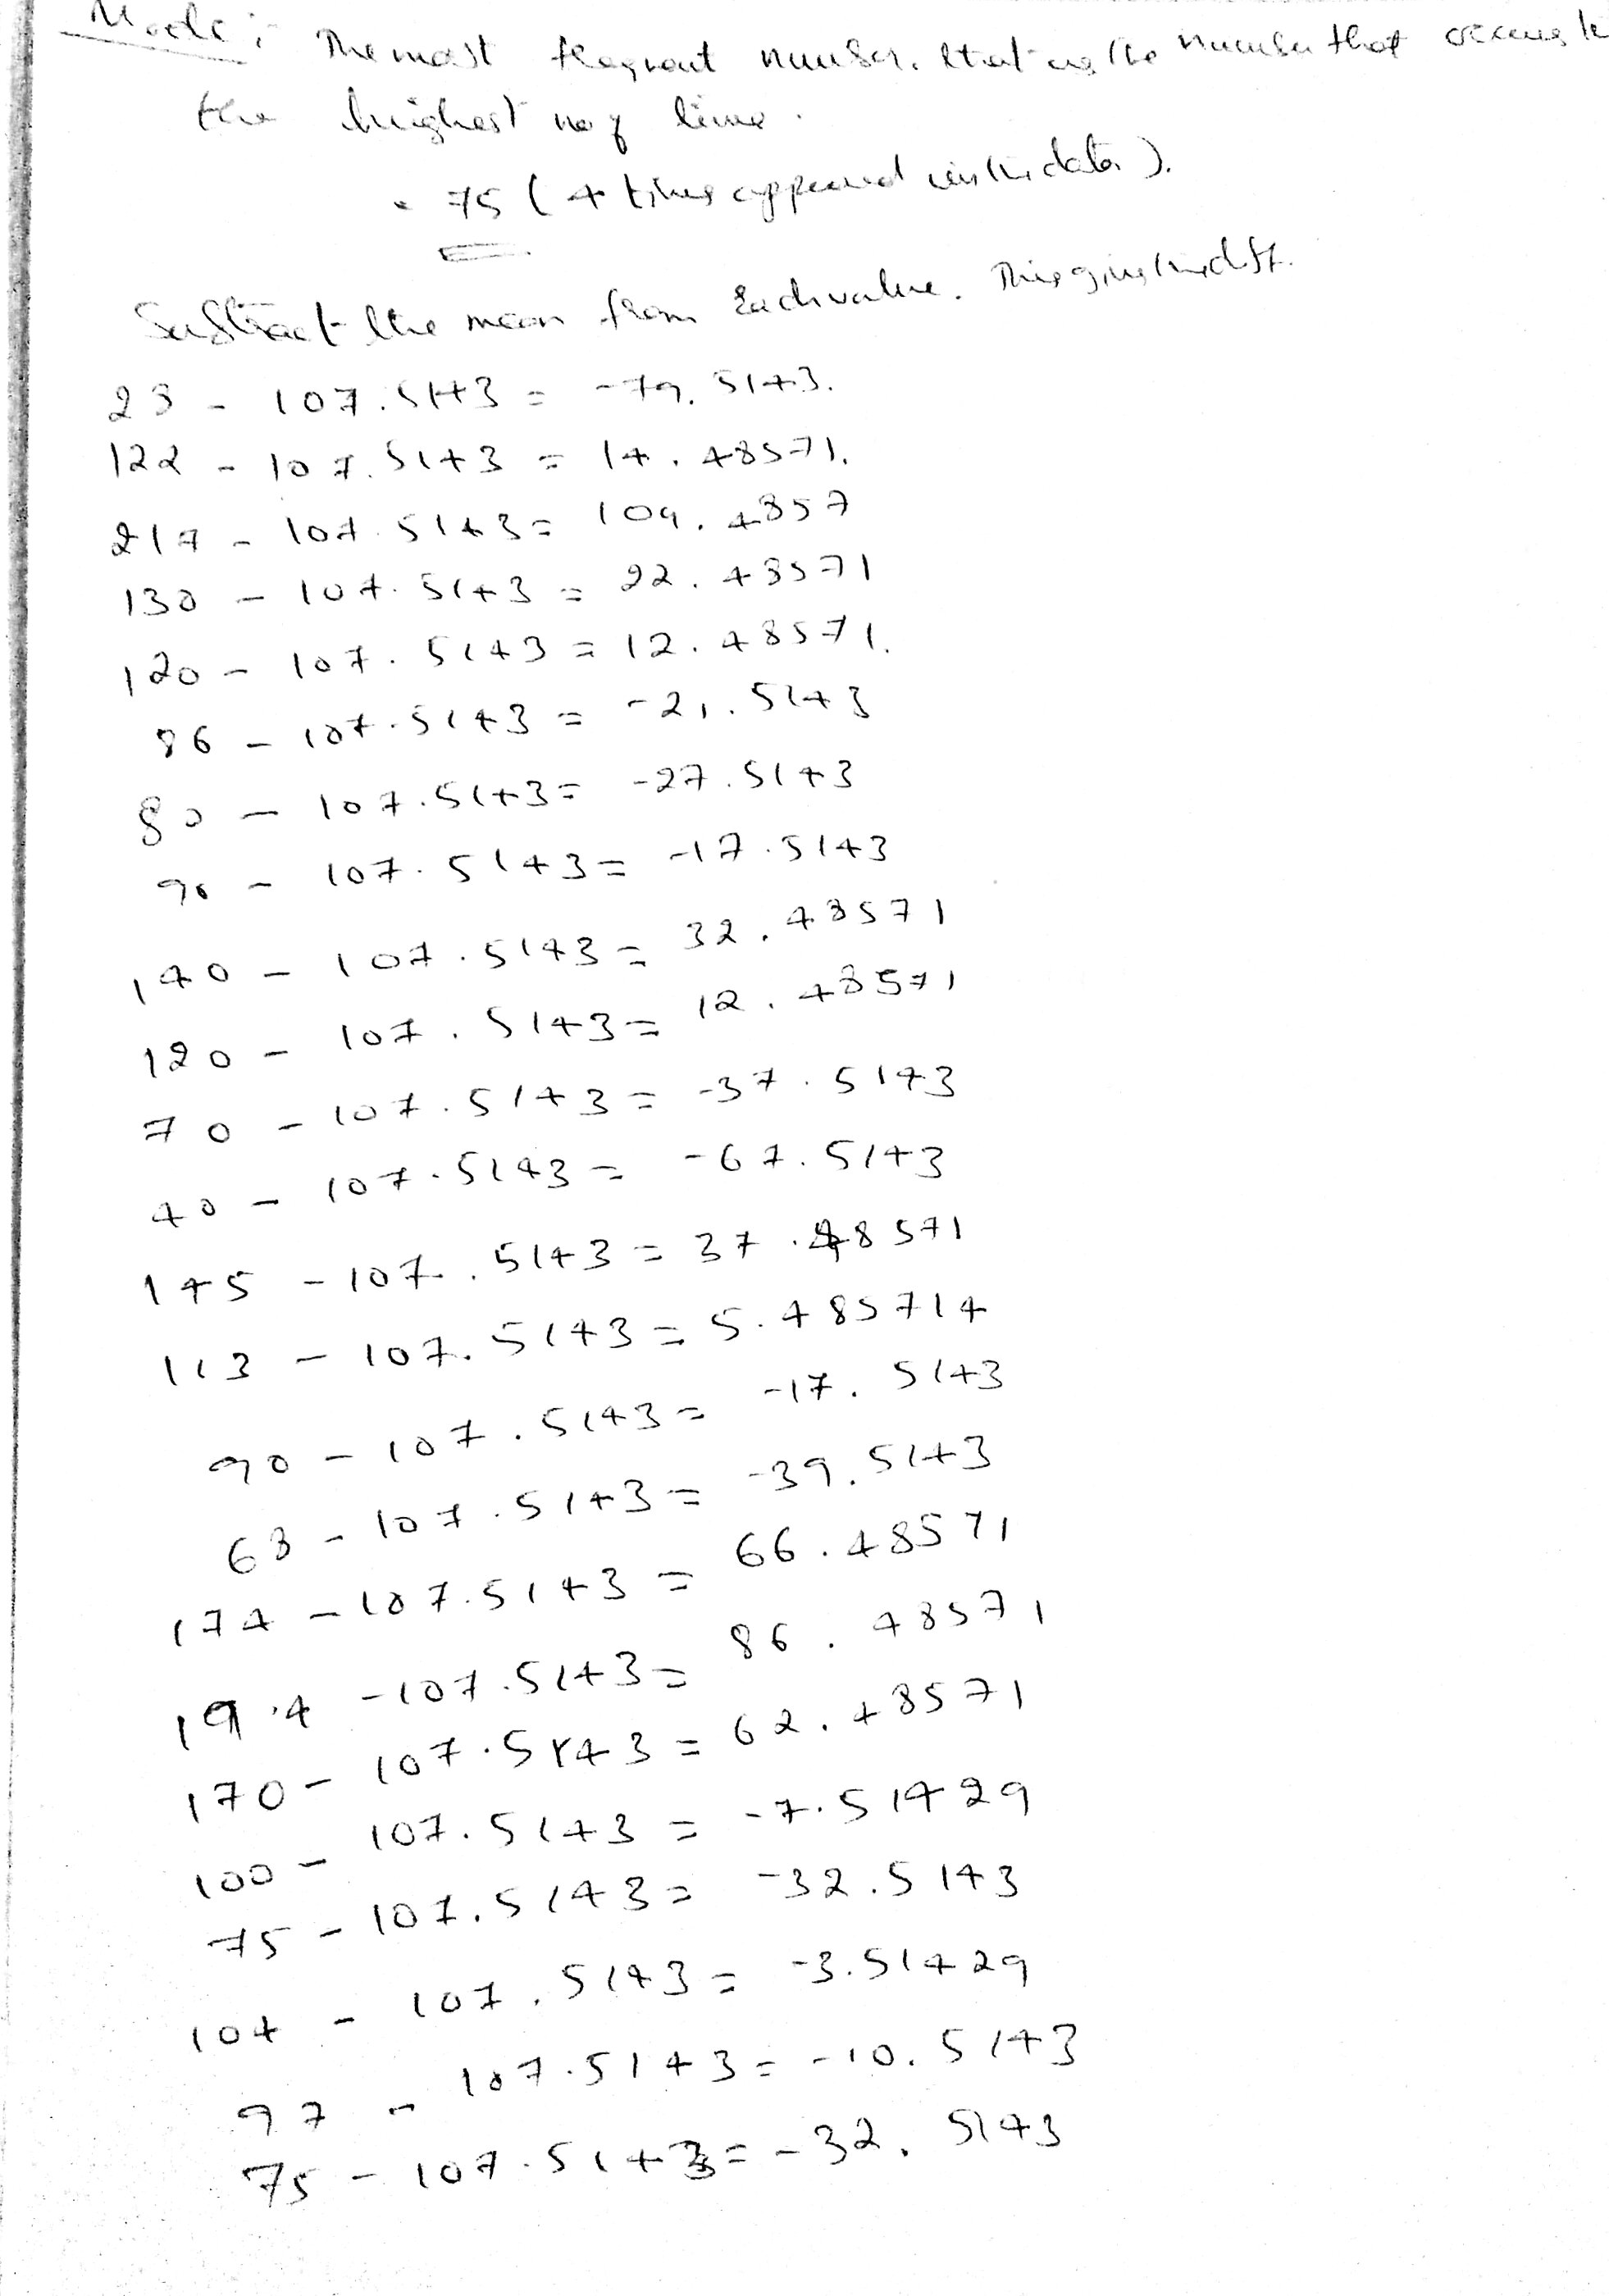 Mode: The most frequent number. that is the number that occurs
the highest no of time.
= 75 (4 times appeared in the data).
Subtract the mean from Each value. This gives the diff.
28 - 107.5143 = -79.5143.
122 - 107.5143 = 14.48571.
217 - 107.5143 = 109.4857
130 - 107.5143 = 22.48571
120 - 107.5143 = 12.48571.
86 - 107.5143 = -21.5143
80 - 107.5143 = -27.5143
90 - 107.5143 = -17.5143
140 - 107.5143 = 32.48571
120 - 107.5143 = 12.48571
70 - 107.5143 = -37.5143
40 - 107.5143 = -67.5143
145 - 107.5143 = 37.48571
113 - 107.5143 = 5.485714
90 - 107.5143 = -17.5143
68 - 107.5143 = -39.5143
174 - 107.5143 = 66.48571
194 - 107.5143 = 86.48571
170 - 107.5143 = 62.48571
100 - 107.5143 = -7.51429
75 - 107.5143 = -32.5143
104 - 107.5143 = -3.51429
97 - 107.5143 = -10.5143
75 - 107.5143 = -32.5143